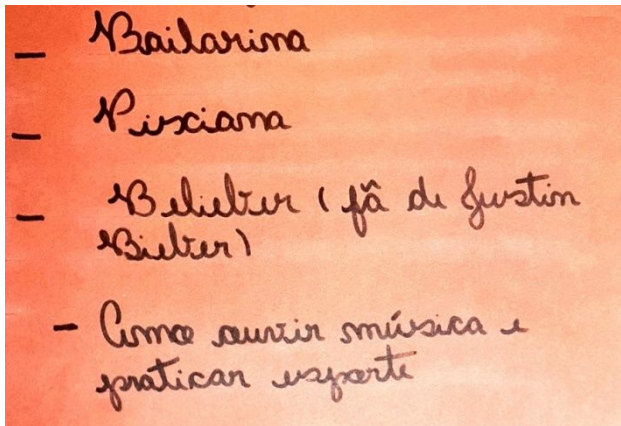 – Bailarina
– Pisciana
– Belieber (fã de Justin
Bieber)
– Amo ouvir música e
praticar esporte